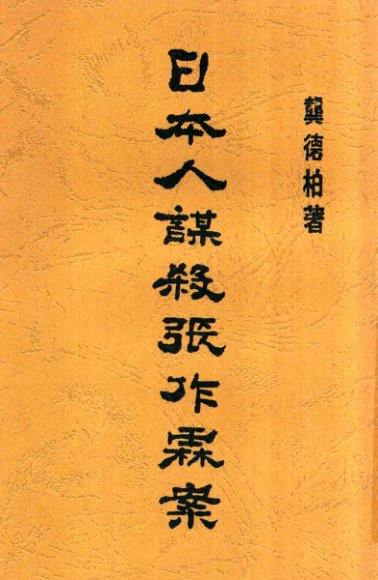 龔德柏著
日本人謀殺張作霖案